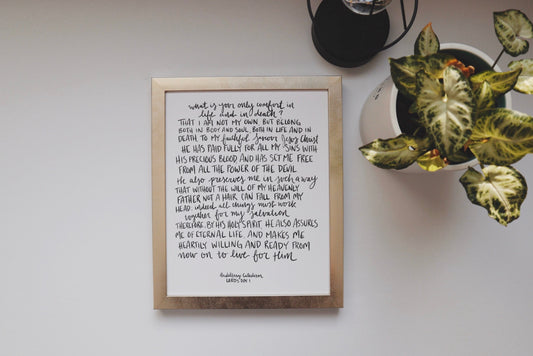 what is your only comfort in
life and in death?
THAT I AM NOT MY OWN, BUT BELONG
BOTH IN BODY AND SOUL, BOTH IN LIFE AND IN
DEATH TO MY faithful savior Jesus Christ
HE HAS PAID FULLY FOR ALL MY SINS WITH
HIS PRECIOUS BLOOD AND HAS SET ME FREE
FROM ALL THE POWER OF THE DEVIL.
He also preserves me in such a way
THAT WITHOUT THE WILL OF MY HEAVENLY
FATHER NOT A HAIR CAN FALL FROM MY
HEAD. indeed all things must work
together for my salvation
THEREFORE, BY HIS HOLY SPIRIT, HE ALSO ASSURES
ME OF ETERNAL LIFE, AND MAKES ME
HEARTILY WILLING AND READY FROM
now on to live for Him
Heidelberg Catechism
LORDS DAY 1